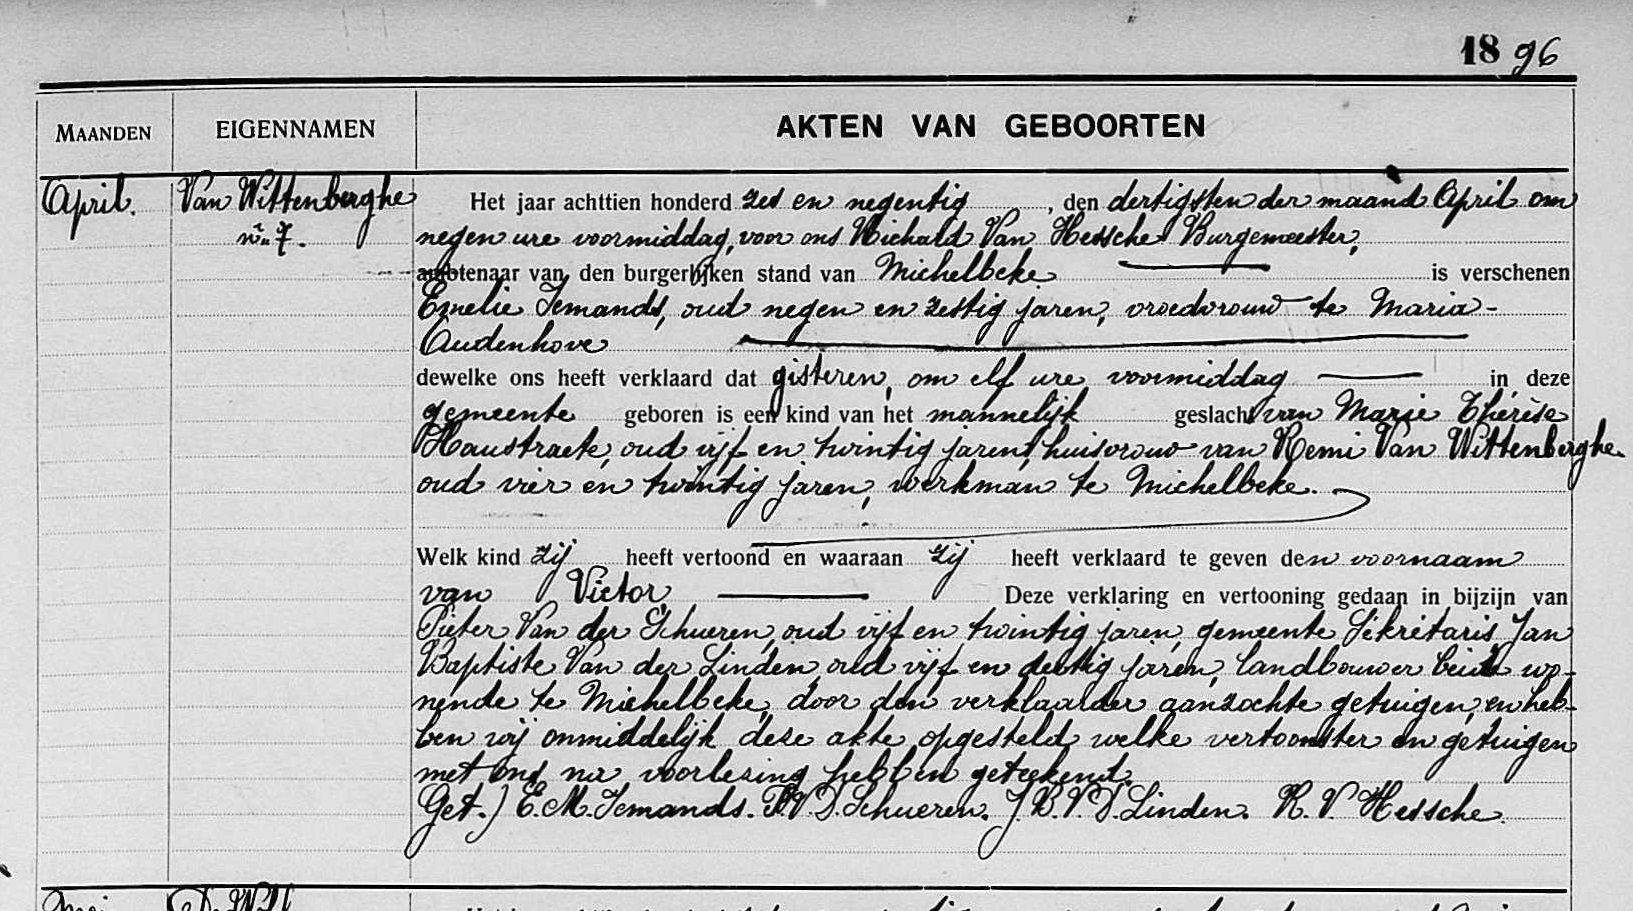 1896
MAANDEN EIGENNAMEN AKTEN VAN GEBOORTEN
April. Van Wittenberghe Het jaar achttien honderd zes en negentig, den dertigsten der maand April om
nº 7. negen ure voormiddag, voor ons Richald Van Hessche Burgemeester,
ambtenaar van den burgerlijken stand van Michelbeke is verschenen
Emelie Iemands, oud negen en zestig jaren, vroedvrouw te Maria-
Audenhove
dewelke ons heeft verklaard dat gisteren, om elf ure voormiddag in deze
gemeente geboren is een kind van het mannelijk geslacht van Marie Thérèse
Haustraete, oud vijf en twintig jaren, huisvrouw van Remi Van Wittenberghe
oud vier en twintig jaren, werkman te Michelbeke.
Welk kind zij heeft vertoond en waaraan zij heeft verklaard te geven den voornaam
van Victor Deze verklaring en vertooning gedaan in bijzijn van
Pieter Van der Schueren, oud vijf en twintig jaren, gemeente Sekretaris Jan
Baptiste Van der Linden, oud vijf en dertig jaren, landbouwer beide wo-
nende te Michelbeke, door den verklaarder aanzochte getuigen, en heb-
ben wij onmiddelijk deze akte opgesteld welke vertoonster en getuigen
met ons na voorlezing hebben geteekend.
Get.) E. M. Iemands. P. V. D. Schueren. J B. V. D. Linden. R. V. Hessche.